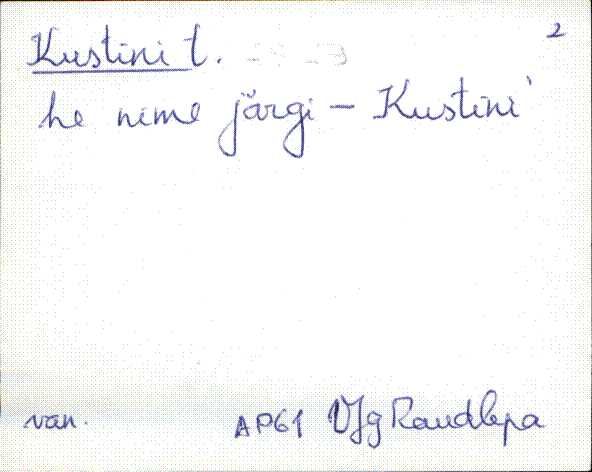 2
Kustini t.
he nime järgi – Kustini'
van. AP61 VJg Raudlepa